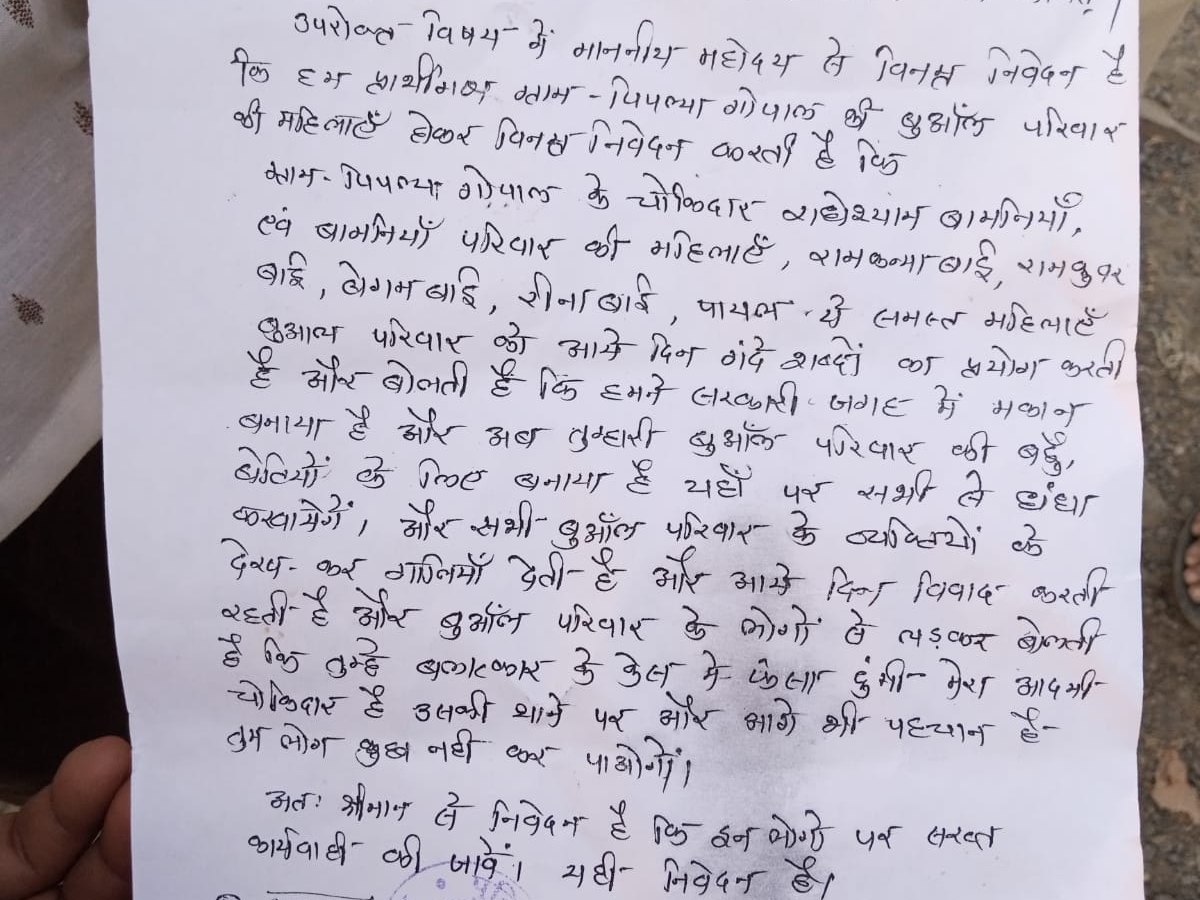 उपरोक्त विषय में माननीय महोदय से विनम्र निवेदन है
कि हम प्रार्थीगण ग्राम - पिपल्या गोपाल की बुऑल परिवार
की महिलाएँ होकर विनम्र निवेदन करती है कि
ग्राम - पिपल्या गोपाल के चोकिदार राधेश्याम बामनियाँ,
एवं बामनियाँ परिवार की महिलाएँ, रामकन्या बाई, रामकुवर
बाई, बेगम बाई, रीना बाई, पायल ये समस्त महिलाएँ
बुआल परिवार को आये दिन गंदे शब्दों का प्रयोग करती
है और बोलती है कि हमने सरकारी जगह में मकान
बनाया है और अब तुम्हारी बुऑल परिवार की बहुँ,
बेतियों के लिए बनाया है यहाँ पर सभी से धंधा
करवायेगें, और सभी बुऑल परिवार के व्यक्तियों के
देख-कर गालियाँ देती है और आये दिन विवाद करती
रहती है और बुऑल परिवार के लोगों से लड़कर बोलती
है कि तुम्हे बलात्कार के केस मे फंसा दुंगी मेरा आदमी
चोकिदार है उसकी थाने पर और आगे भी पहचान है-
तुम लोग कुछ नही कर पाओगों।
अतः श्रीमान से निवेदन है कि इन लोगो पर सख्त
कार्यवाही की जावें। यही निवेदन है।